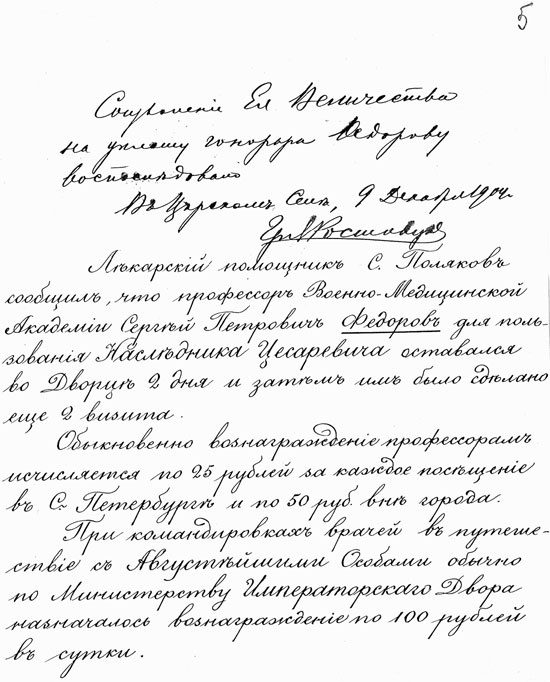 5
Соизволеніе Ея Величества
на уплату гонорара Ѳедорову
воспослѣдовало
Въ Царскомъ Селѣ, 9 Декабря 1904 г.
Гр. Я Ростовцо
Лѣкарскій помощникъ С. Поляковъ
сообщилъ, что профессоръ Военно-Медицинской
Академіи Сергѣй Петровичъ Федоровъ для поль-
зованія Наслѣдника Цесаревича оставался
во Дворцѣ 2 дня и затѣмъ имъ было сдѣлано
еще 2 визита.
Обыкновенно вознагражденіе профессорамъ
исчисляется по 25 рублей за каждое посѣщеніе
въ С.-Петербургѣ и по 50 руб. внѣ города.
При командировкахъ врачей въ путеше-
ствіе съ Августѣйшими Особами обычно
по Министерству Императорскаго Двора
назначалось вознагражденіе по 100 рублей
въ сутки.